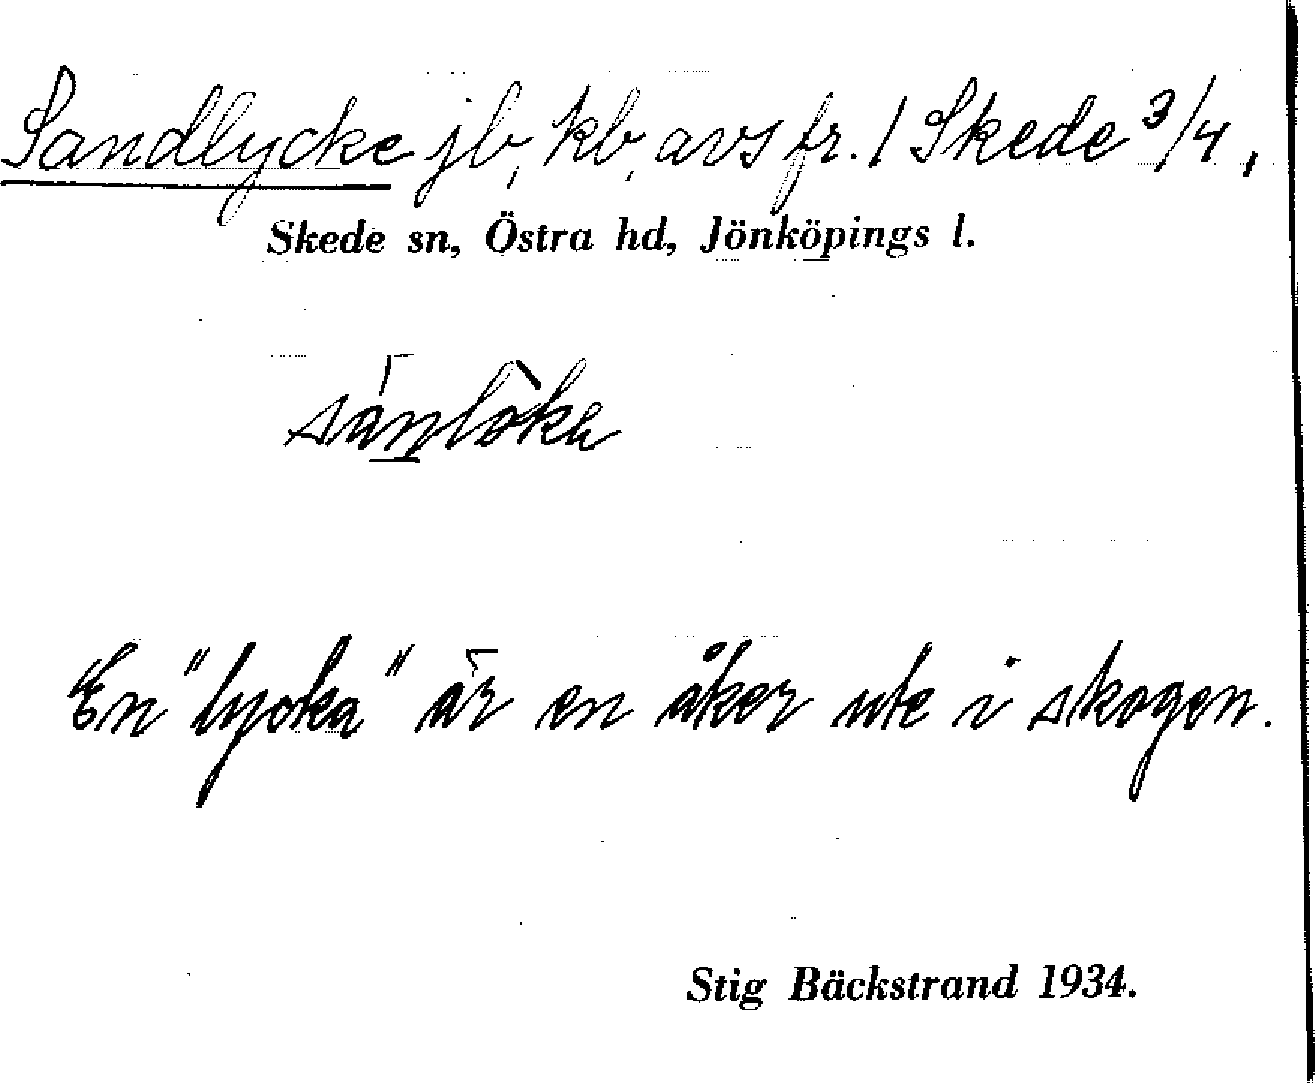 Sandlycke jb, kb, avs fr. / Skede 3/4,
Skede sn, Östra hd, Jönköpings l.
En "lycka" är en åker ute i skogen.
Stig Bäckstrand 1934.